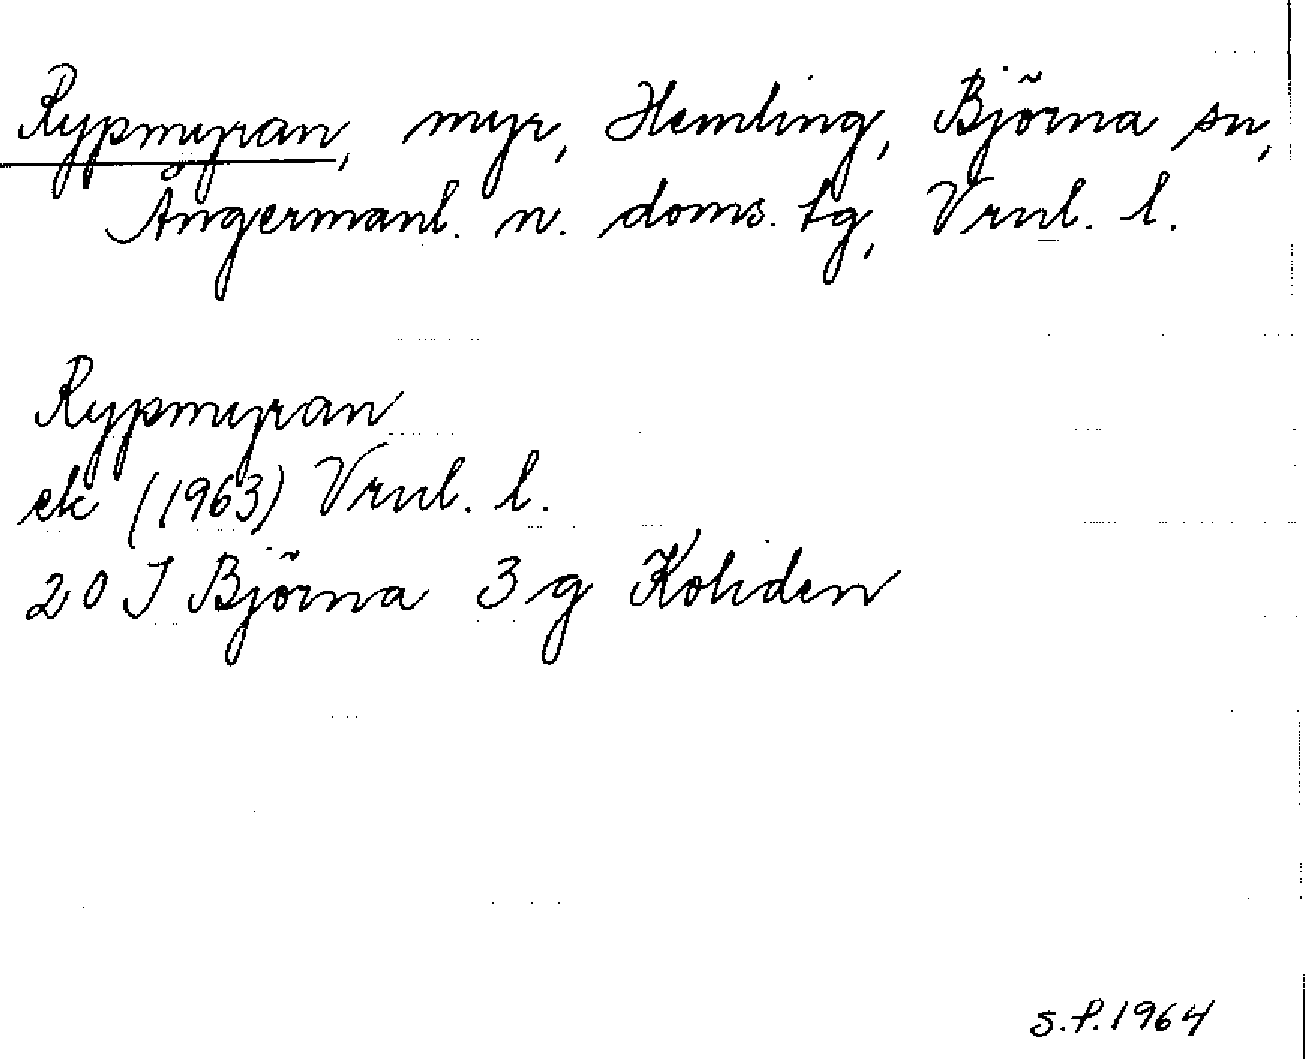 Rypmyran, myr, Hemling, Björna sn,
Ångermanl. n. doms. tg, Vrnl. l.
Rypmyran
ek (1963) Vrnl. l.
20 J Björna 3 g Koliden
S.P. 1964